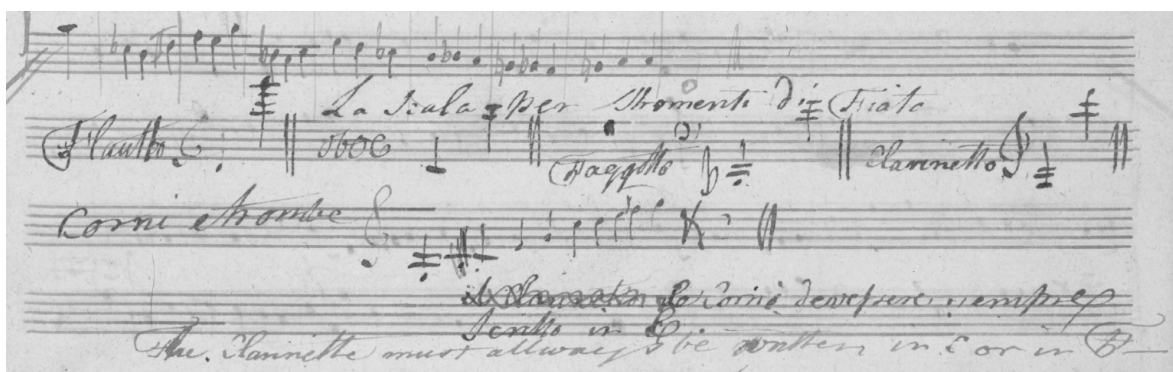 La Scala per Stromenti di Fiato
Flautto oboe Faggotto Clarinetto
Corni e trombe
lo Corno deve sempre
scritto in C
The Clarinette must allways be written in C or in B